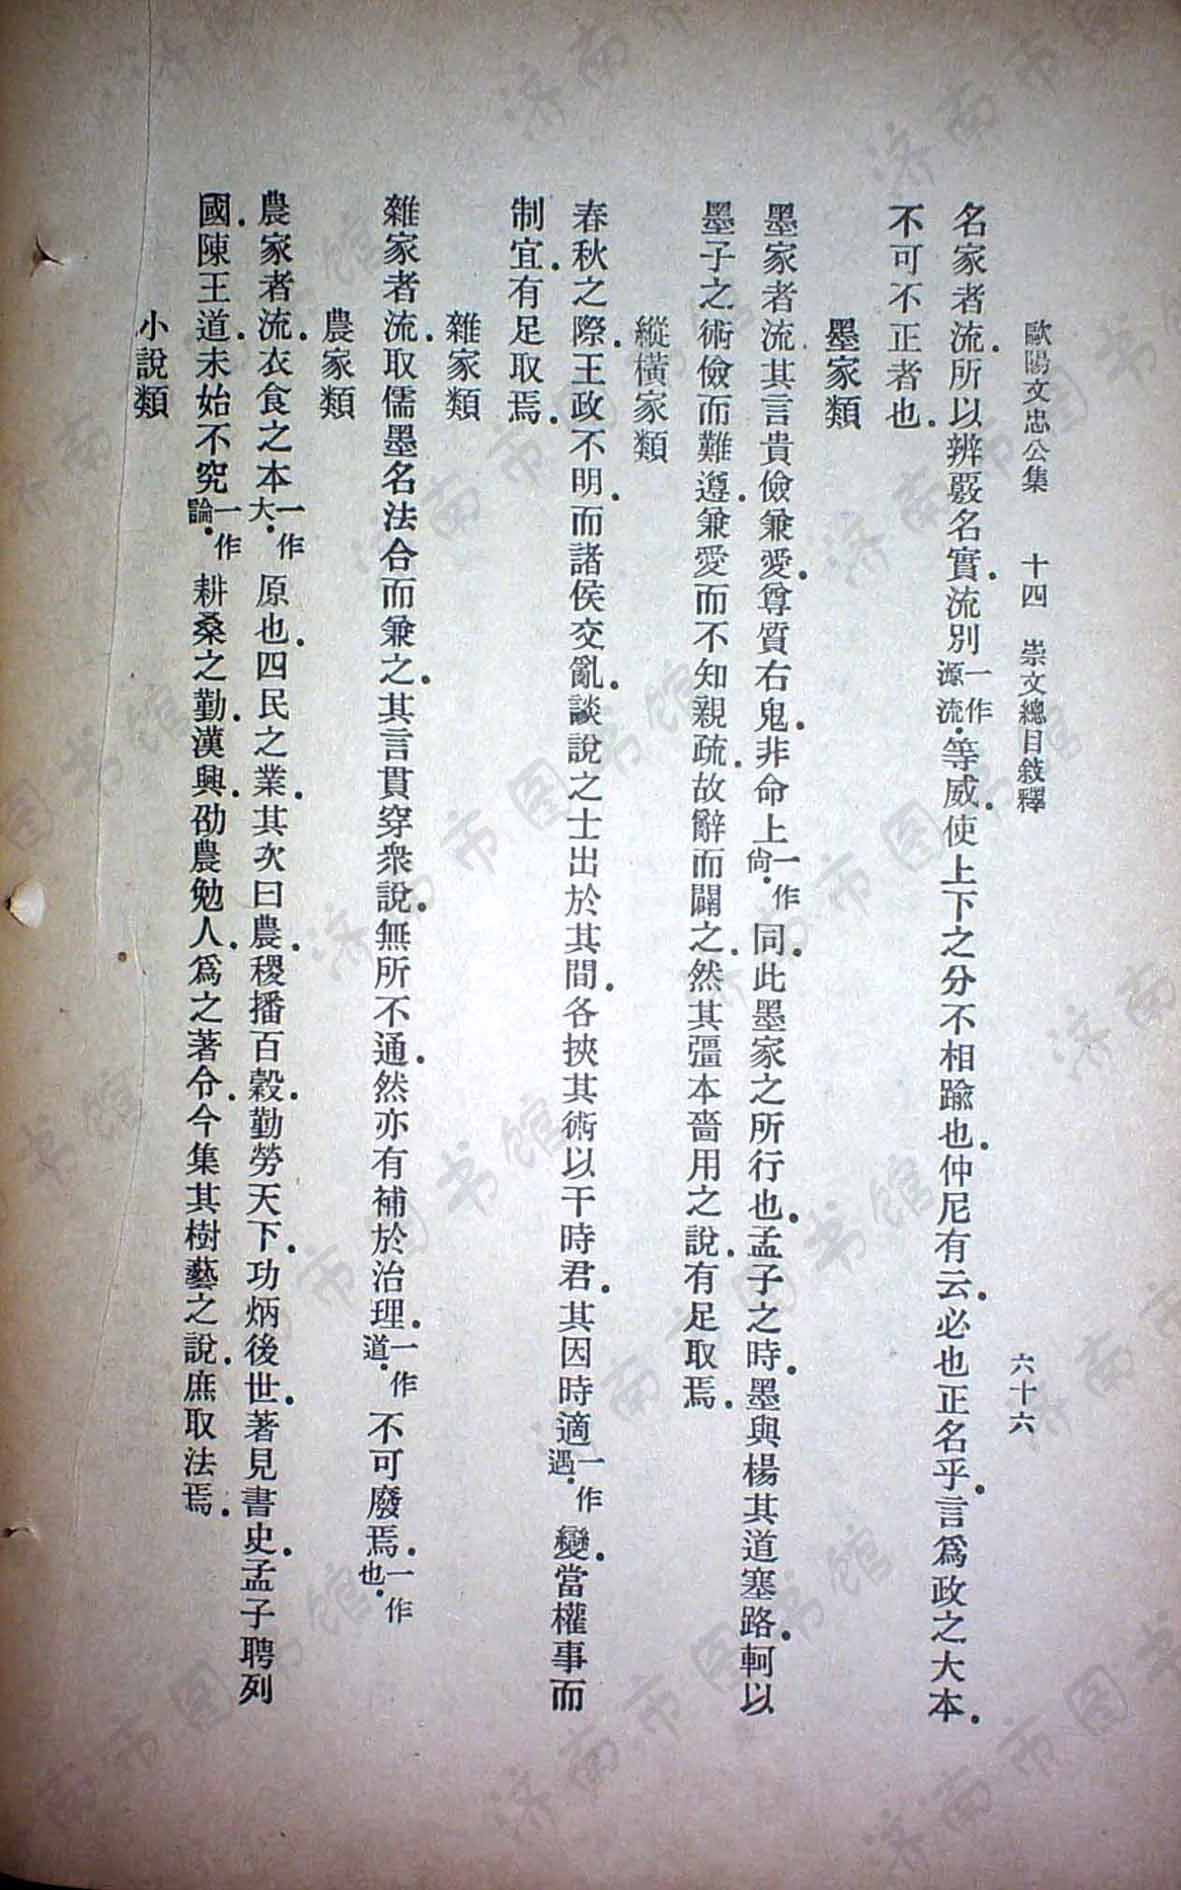 歐陽文忠公集 十四 崇文總目敍釋 六十六
名家者流．所以辨覈名實．流別一作源流．等威．使上下之分不相踰也．仲尼有云．必也正名乎．言爲政之大本．
不可不正者也．
墨家類
墨家者流．其言貴儉兼愛．尊質右鬼．非命上一作尙．同．此墨家之所行也．孟子之時．墨與楊其道塞路．軻以
墨子之術儉而難遵．兼愛而不知親疏．故辭而闢之．然其彊本嗇用之說．有足取焉．
縱橫家類
春秋之際．王政不明．而諸侯交亂．談說之士出於其間．各挾其術以干時君．其因時適一作遇．變．當權事而
制宜．有足取焉．
雜家類
雜家者流．取儒墨名法合而兼之．其言貫穿衆說．無所不通．然亦有補於治理．一作道．不可廢焉．一作也．
農家類
農家者流．衣食之本一作大．原也．四民之業．其次曰農．稷播百穀．勤勞天下．功炳後世．著見書史．孟子聘列
國．陳王道．未始不究一作論．耕桑之勤．漢興．劭農勉人．爲之著令．今集其樹藝之說．庶取法焉．
小說類
济南市图书馆